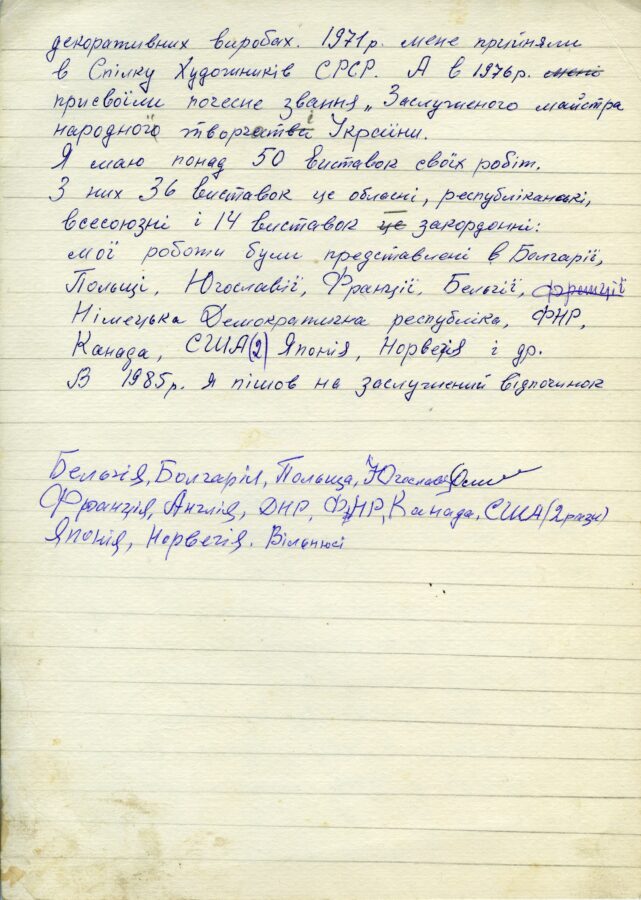 декоративних виробах. 1971р. мене прийняли
в Спілку Художників СРСР. А в 1976р. мені
присвоїли почесне звання „Заслуженого майстра
народної творчості України.
Я маю понад 50 виставок своїх робіт.
З них 36 виставок це обласні, республіканські,
всесоюзні і 14 виставок це закордонні:
мої роботи були представлені в Болгарії,
Польщі, Югославії, Франції, Бельгії, Франції
Німецька Демократична республіка, ФНР,
Канада, США(2) Японія, Норвегія і др.
В 1985р. я пішов на заслужений відпочинок
Бельгія, Болгарія, Польща, Югославія
Франція, Англія, ДНР, ФНР, Канада, США(2 рази)
Японія, Норвегія. Вільнюсі